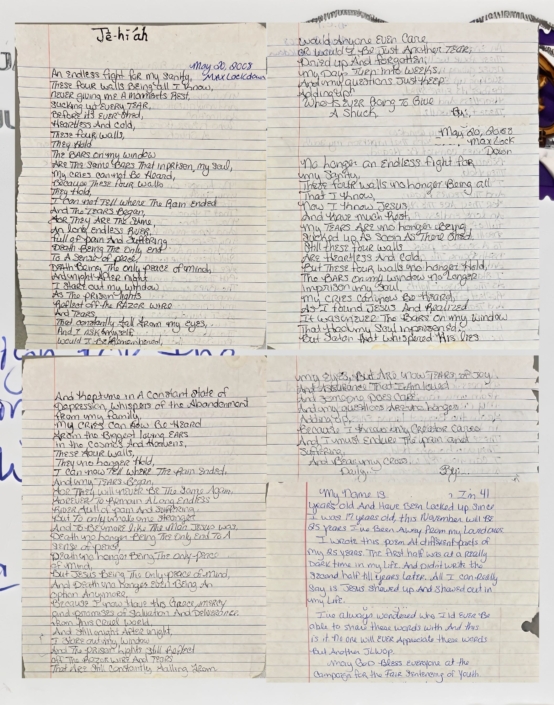 Je-hi-ah
May 20, 2008
Max Lockdown
An Endless fight for my Sanity,
These four walls Being all I know,
never giving me A moments Rest,
Sucking up Every TEAR,
Before it's Ever Shed,
Heartless And Cold,
These four walls,
They Hold
The BARS on my window
Are The Same Bars That imprison my Soul,
My CRIES cannot Be Heard,
Because These four walls
They Hold,
I can not Tell where The Rain Ended
And The TEARS Began,
For They Are The Same,
An long Endless River,
full of pain And Suffering
Death Being The only End
To A Sense of peace,
Death Being The only peace of mind,
And night After night
I Stare out my window
As The prison lights
Reflect off the RAZOR WIRE
And Tears,
That constantly fall from my eyes,
And I Ask myself
would I Be Remembered,
would Anyone Even Care,
or would I Be Just Another TEAR,
Dried up And forgotten,
my Days Turn into weeks,
And my questions Just keep
Adding up,
who is Ever Going To Give
A Shuck
May 20, 2008
Max Lock
Down
No longer An Endless fight for
my Sanity,
These four walls no longer Being all
That I know,
Now I know Jesus
And Have much Rest,
my TEARS Are no longer Being
Sucked up As Soon As There Shed
Still these four walls
Are Heartless And Cold,
But These four walls no longer Hold,
The BARS on my window no longer
Imprison my Soul,
my CRIES can now Be Heard,
As I found Jesus And Realized
It was never The Bars on my window
That Had my Soul imprisoned,
But Satan that whispered His lies
And Kept me in A constant State of
Depression, whispers of the Abandonment
from my family,
My CRIES can now Be Heard
from the Biggest loving EARS
in the Cosmos And Heavens,
These four walls,
They no longer Hold,
I can now Tell where The Rain Ended,
And my TEARS Began,
For They will never Be The Same Again
forever To Remain A long Endless
River full of pain And Suffering
But To only make me Stronger
And To Be more like The man Jesus was,
Death no longer Being The only End To A
Sense of peace,
Death no longer Being The only peace
of mind,
But Jesus Being The only peace of mind,
And Death no longer Being An
option Anymore,
Because I now Have His Grace, mercy
and promises of Salvation And Deliverance
from This Cruel World,
And Still night After night,
I Stare out my window
And The prison lights Still Reflect
off The Razor wire And Tears
That Are Still Constantly falling from
my Eyes, But Are now TEARS of Joy
And Assurance That I Am loved
And Someone Does Care,
And my questions Are no longer
Adding up,
Because I know my Creator Cares
And I must Endure The pain And
Suffering,
And Bear my Cross
Daily.
My Name is I'm 41
years old And Have Been Locked up Since
I was 17 years old, this November will Be
25 years I've Been Away from my Loved ones.
I wrote this poem At different parts of
my 25 years. The first half was at a Really
Dark time in my Life. And didn't write the
second half till years later. All I can Really
Say is Jesus Showed up And Showed out in
my Life.
I've always wondered who I'd Ever Be
able to share these words with And this
is it. No one will Ever Appreciate these words
But Another
May GOD Bless everyone at the
Campaign for the Fair Sentencing of Youth